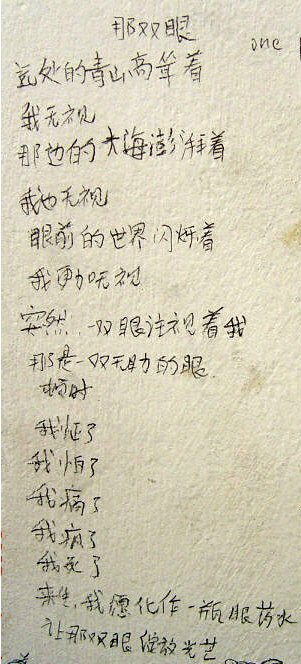 那双眼
one
远处的青山高耸着
我无视
那边的大海澎湃着
我也无视
眼前的世界闪烁着
我更加无视
突然,一双眼注视着我
那是一双无助的眼
顿时
我怔了
我怕了
我痛了
我疯了
我死了
来生,我愿化作一瓶眼药水
让那双眼绽放光芒